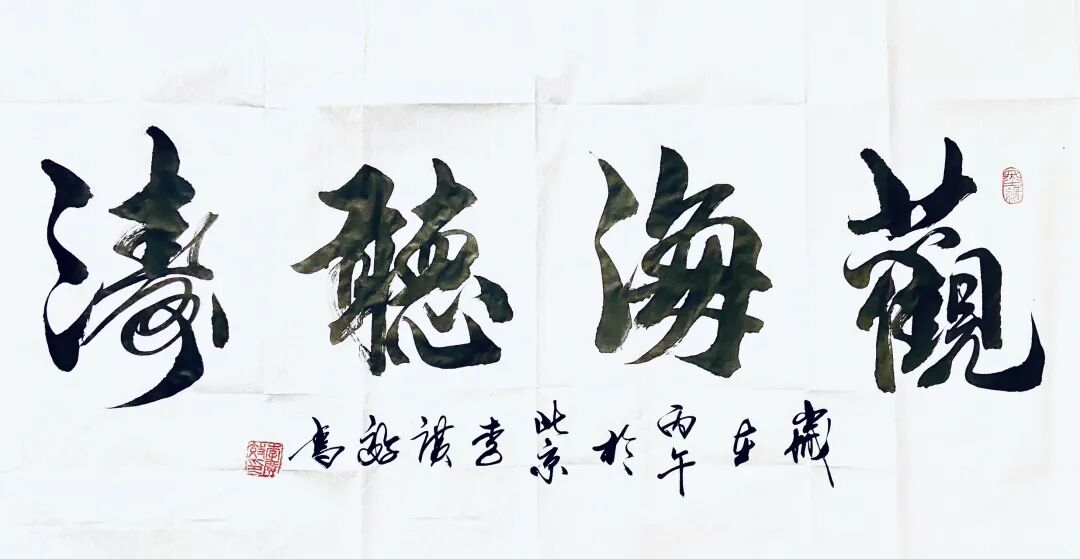 觀海聽濤
歲在丙午於北京李
書